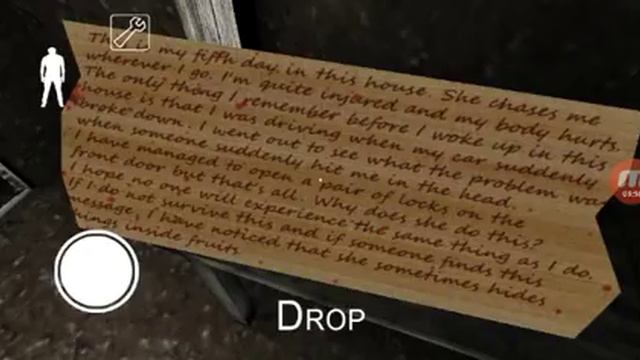 my fifth day in this house. She chases me
wherever I go. I'm quite injured and my body hurts.
The only thing I remember before I woke up in this
house is that I was driving when my car suddenly
broke down. I went out to see what the problem was
when someone suddenly hit me in the head.
I have managed to open a pair of locks on the
front door but that's all. Why does she do this?
I hope no one will experience the same thing as I do.
If I do not survive this and if someone finds this
message, I have noticed that she sometimes hides
things inside fruits
DROP